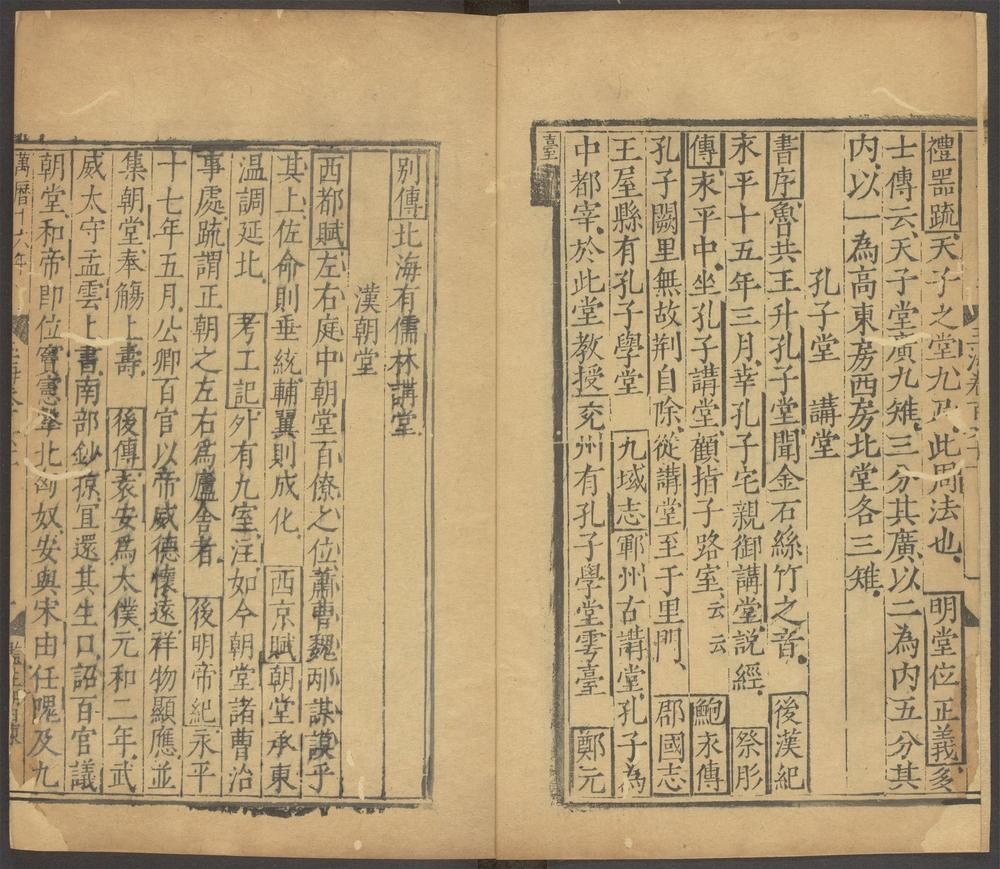 禮器疏天子之堂九尺此周法也明堂位正義多
士傳云天子堂廣九雉三分其廣以二為内五分其
内以一為高東房西房北堂各三雉
孔子堂 講堂
書序魯共王升孔子堂聞金石絲竹之音後漢紀
永平十五年三月幸孔子宅親御講堂說經祭肜
傳永平中坐孔子講堂顧指子路室云云鮑永傳
孔子闕里無故荆自除從講堂至于里門郡國志
王屋縣有孔子學堂九域志鄆州古講堂孔子為
中都宰於此堂教授兖州有孔子學堂雲臺鄭元
臺
别傳北海有儒林講堂
漢朝堂
西都賦左右庭中朝堂百僚之位蕭曹魏邴謀謨乎
其上佐命則垂統輔翼則成化西京賦朝堂承東
温調延北考工記外有九室注如今朝堂諸曹治
事處疏謂正朝之左右為廬舍者後明帝紀永平
十七年五月公卿百官以帝威德懷遠祥物顯應並
集朝堂奉觴上壽後傳袁安為太僕元和二年武
威太守孟雲上書南部鈔掠宜還其生口詔百官議
朝堂和帝即位竇憲擊北匈奴安與宋由任隗及九
萬曆十六年